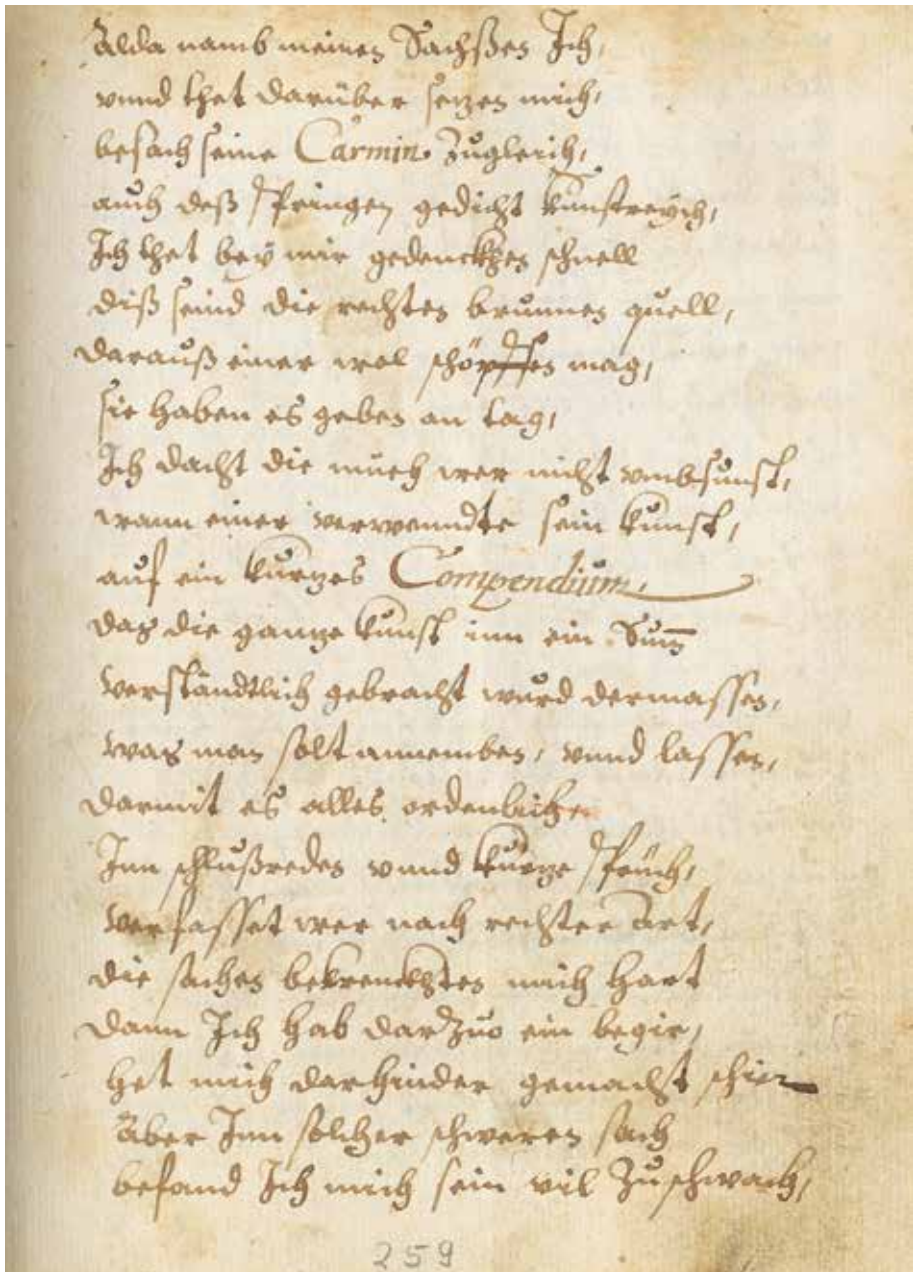 Alda namb meinen Sachßen Ich,
vnnd thet darüber sezen mich,
besach seine Carmin zugleich,
auch deß Springen gedicht kunstreych,
Ich thet bey mir gedenckhen schnell
diß seind die rechten brunnen quell,
darauß einer wol schöpffen mag,
sie haben es geben an tag,
Ich dacht die mueh wer nicht vmbsunst,
wann einer verwenndte sein kunst,
auf ein kurzes Compendium,
das die gantze kunst inn ein Sum̄
verständtlich gebracht wurd dermassen,
was man solt annemben, vnnd lassen,
darmit es alles ordenlich,
Inn schlußreden vnnd kurze sprüch,
verfasset wer nach rechter art,
die sachen bekrenckhten mich hart
dann Ich hab darzuo ein begir,
het mich darhinder gemacht schir
Aber Inn solcher schweren sach
befand Ich mich sein vil zuschwach,
259